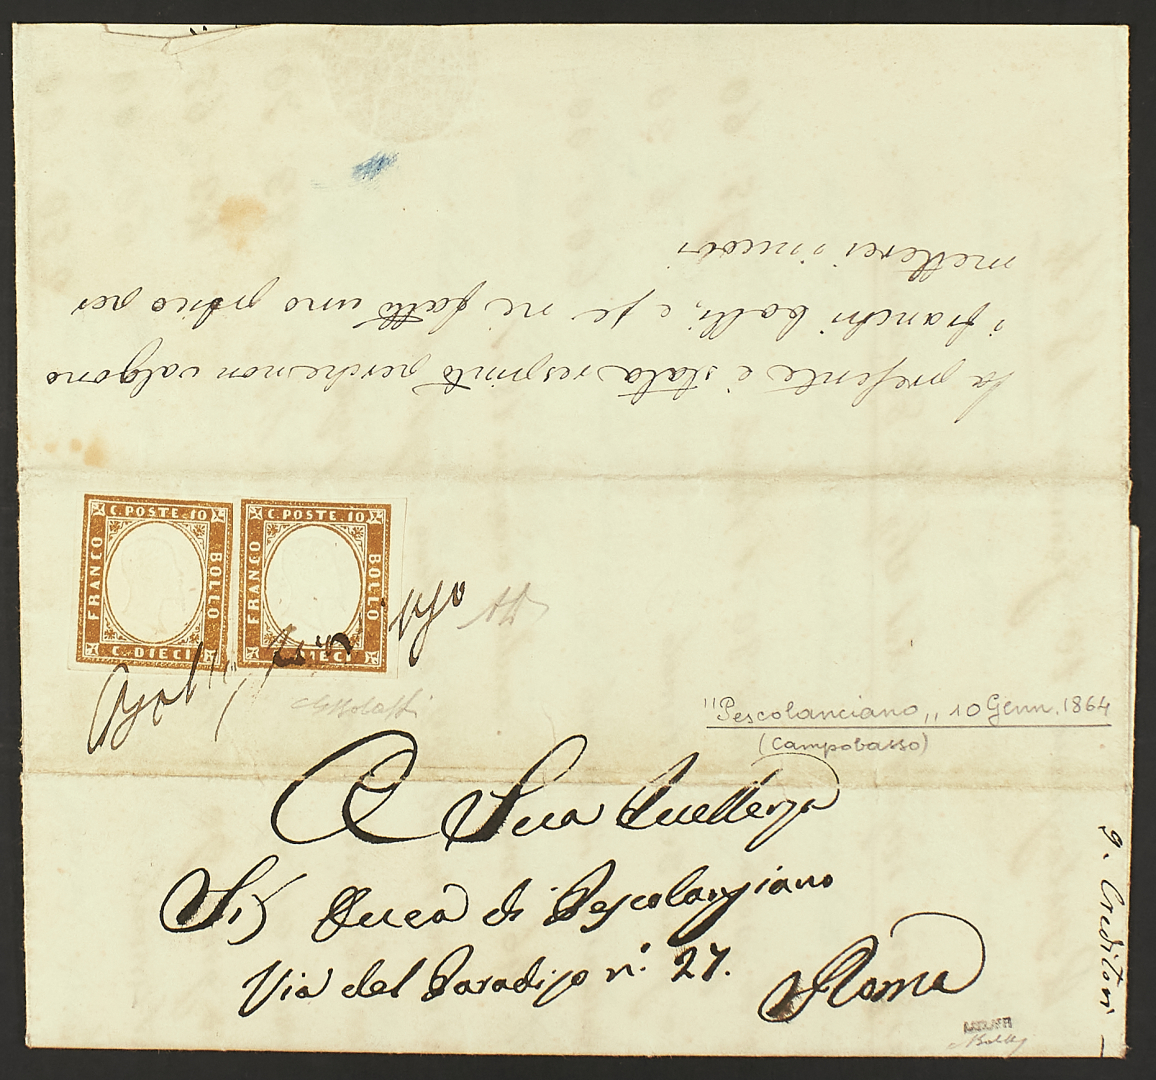 la presente è stata respinta perche non valgono
i franchi bolli, e se ne fatto uno prdico per
metterci i nuovi
C. POSTE. 10
FRANCO
BOLLO
C. DIECI
C. POSTE. 10
FRANCO
BOLLO
DIECI
"Pescolanciano„ 10 Genn. 1864
(Campobasso)
A Sua Eccellenza
Sig Duca di Pescolanciano
Via del Paradiso n°. 27.
Roma
9. Creditori